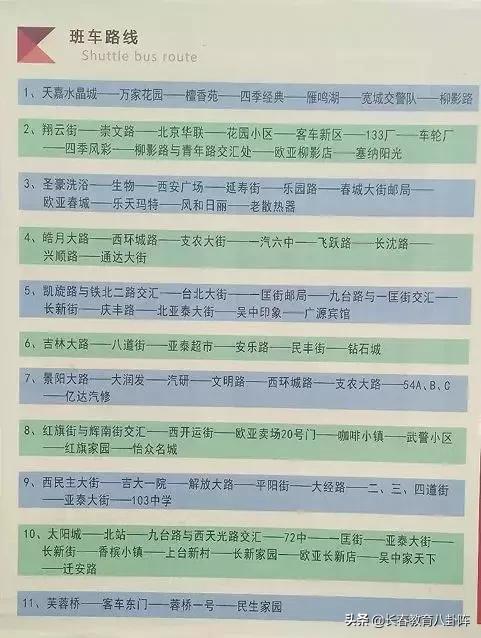 班车路线
Shuttle bus route
1、天嘉水晶城——万家花园——檀香苑——四季经典——雁鸣湖——宽城交警队——柳影路
2、翔云街——崇文路——北京华联——花园小区——客车新区——133厂——车轮厂
——四季风彩——柳影路与青年路交汇处——欧亚柳影店——塞纳阳光
3、圣豪洗浴——生物——西安广场——延寿街——乐园路——春城大街邮局——
欧亚春城——乐天玛特——风和日丽——老散热器
4、皓月大路——西环城路——支农大街——一汽六中——飞跃路——长沈路——
兴顺路——通达大街
5、凯旋路与铁北二路交汇——台北大街——一匡街邮局——九台路与一匡街交汇——
长新街——庆丰路——北亚泰大街——吴中印象——广源宾馆
6、吉林大路——八道街——亚泰超市——安乐路——民丰街——钻石城
7、景阳大路——大润发——汽研——文明路——西环城路——支农大路——54A、B、C
——亿达汽修
8、红旗街与辉南街交汇——西开运街——欧亚卖场20号门——咖啡小镇——武警小区
——红旗家园——怡众名城
9、西民主大街——吉大一院——解放大路——平阳街——大经路——二、三、四道街
——亚泰大街——103中学
10、太阳城——北站——九台路与西天光路交汇——72中——一匡街——亚泰大街——
长新街——香槟小镇——上台新村——长新家园——欧亚长新店——吴中家天下
——迁安路
11、芙蓉桥——客车东门——蓉桥一号——民生家园
头条 @长春教育八卦阵